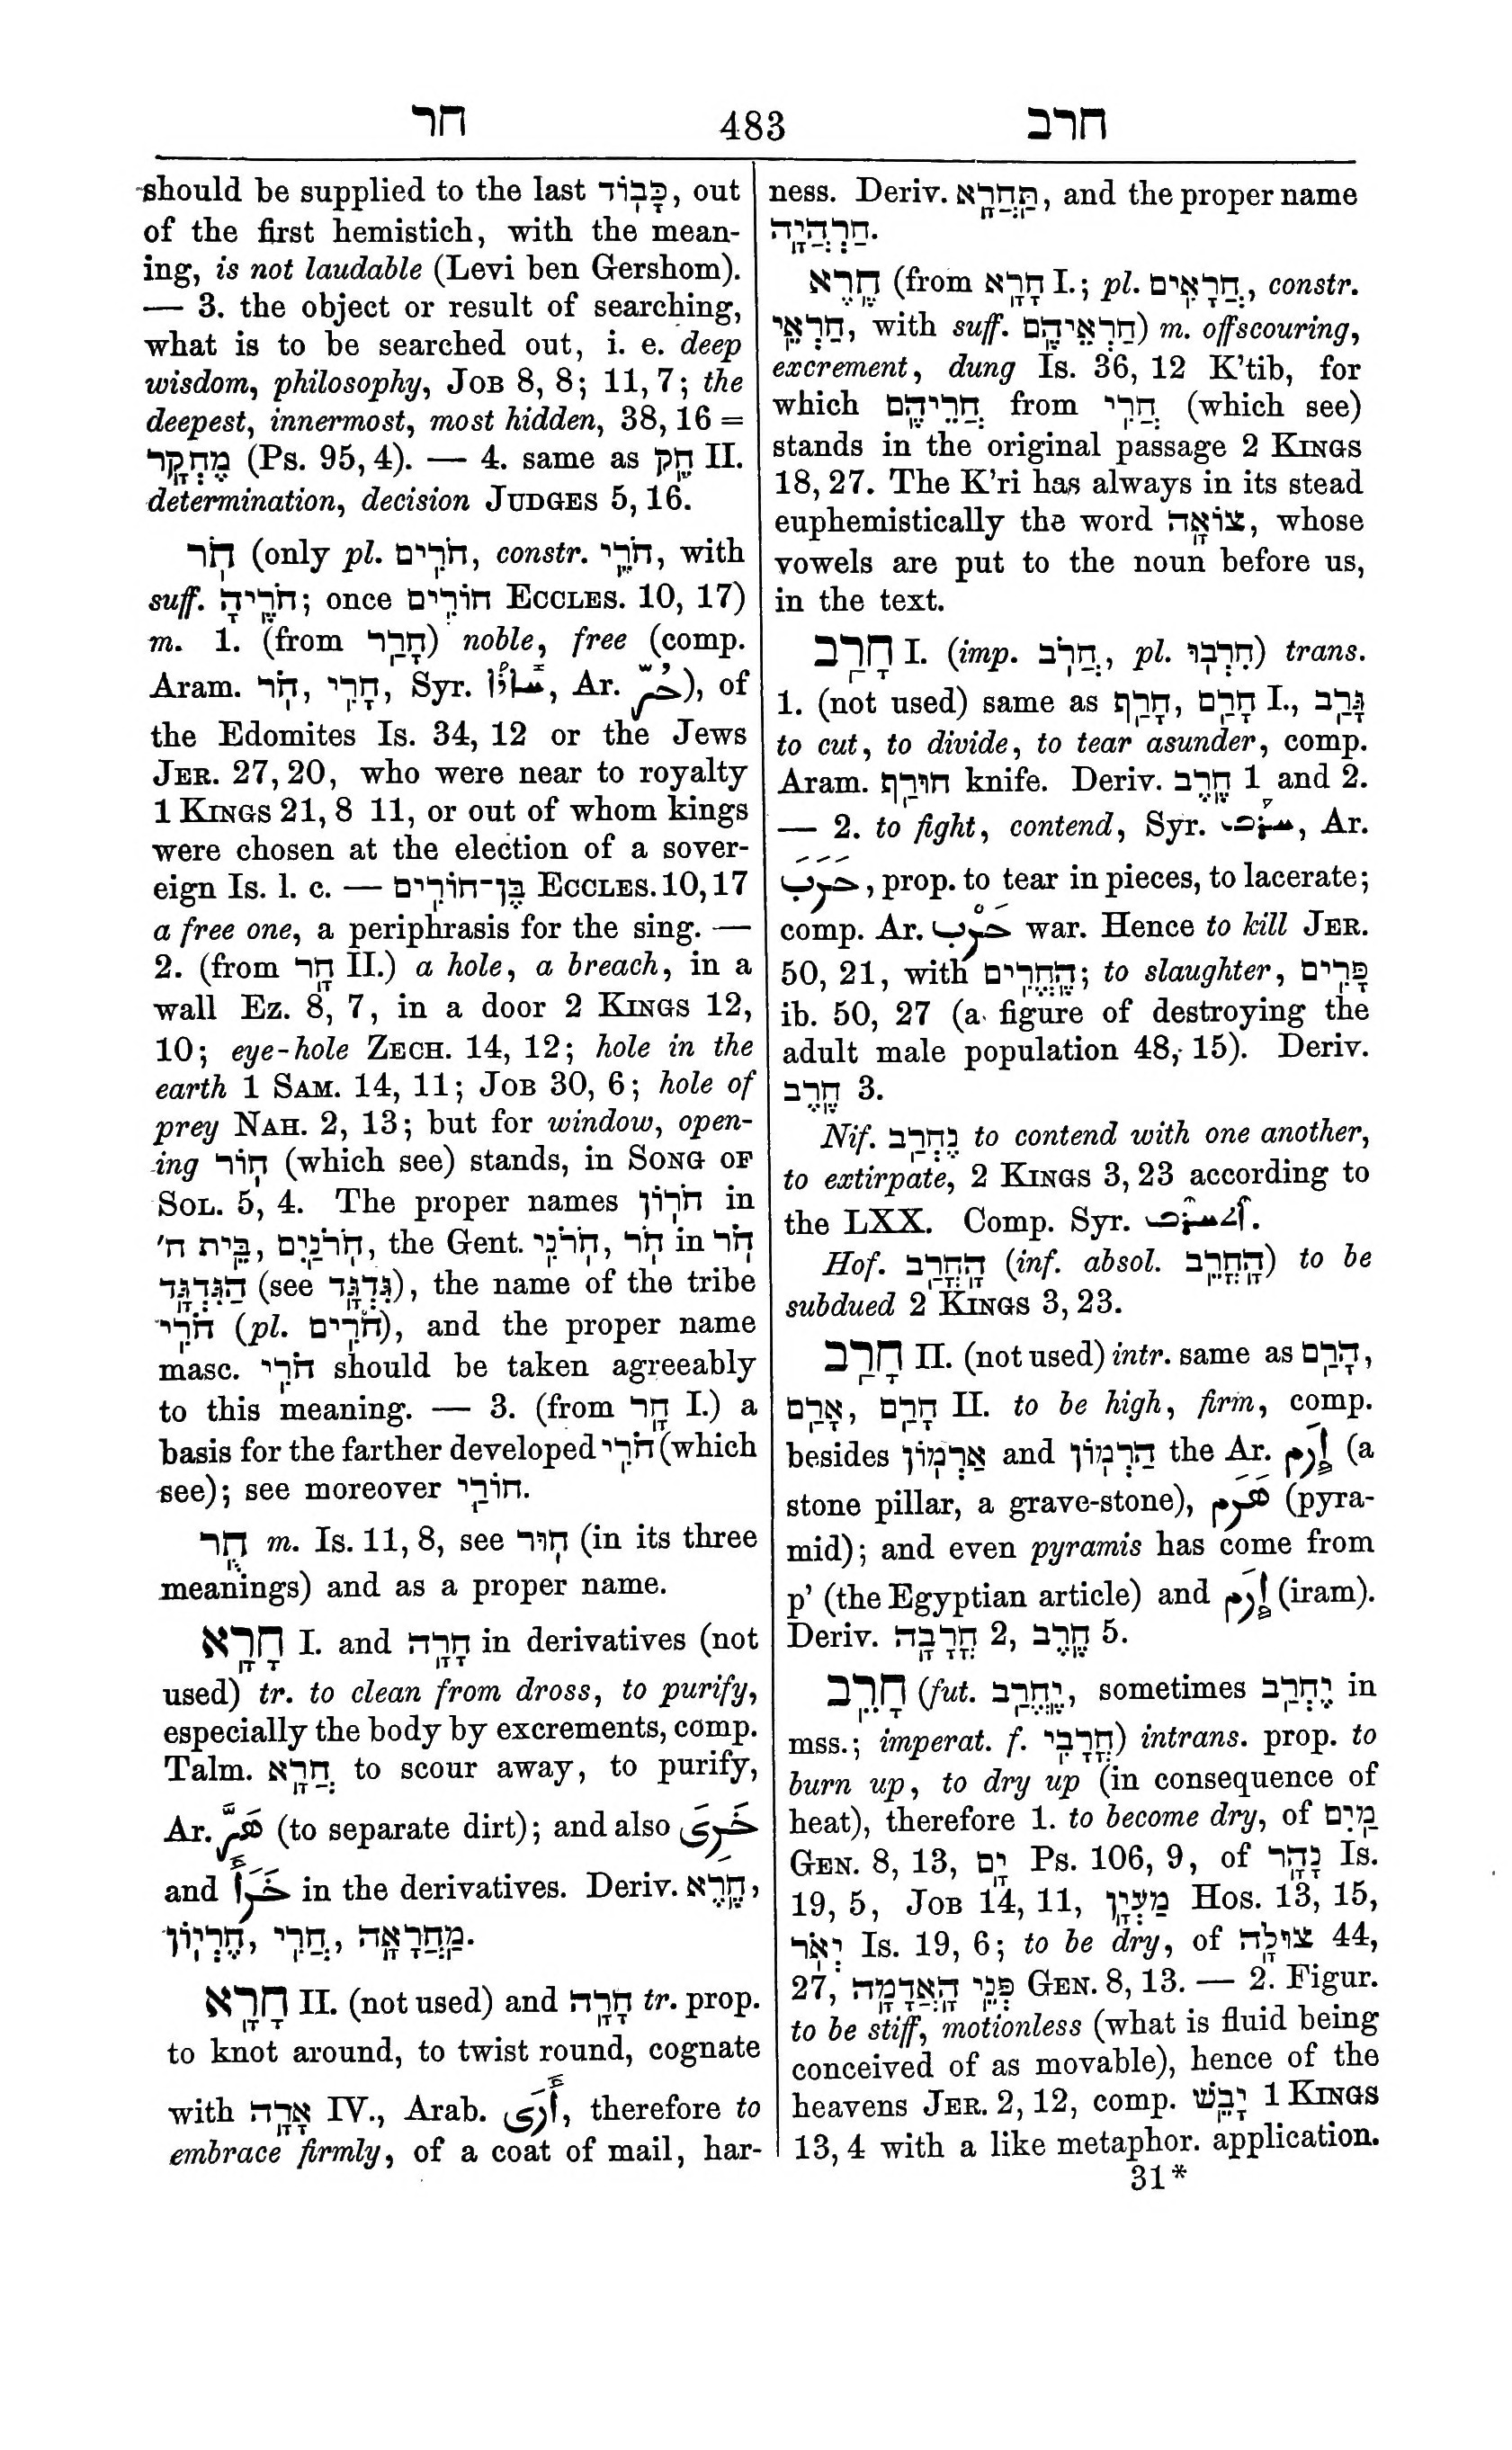 חר 483 חרב
should be supplied to the last כָּבוֹד, out
of the first hemistich, with the mean-
ing, is not laudable (Levi ben Gershom).
— 3. the object or result of searching,
what is to be searched out, i. e. deep
wisdom, philosophy, JOB 8, 8; 11, 7; the
deepest, innermost, most hidden, 38, 16 =
מֶחְקָר (Ps. 95, 4). — 4. same as חֵק II.
determination, decision JUDGES 5, 16.
חֹר (only pl. חֹרִים, constr. חֹרֵי, with
suff. חֹרֶיהָ; once חוֹרִים ECCLES. 10, 17)
m. 1. (from חָרַר) noble, free (comp.
Aram. חֹר, חָרִי, Syr. , Ar. حُرّ), of
the Edomites Is. 34, 12 or the Jews
JER. 27, 20, who were near to royalty
1 KINGS 21, 8 11, or out of whom kings
were chosen at the election of a sover-
eign Is. l. c. — בֶּן־חוֹרִים ECCLES. 10, 17
a free one, a periphrasis for the sing. —
2. (from חָר II.) a hole, a breach, in a
wall Ez. 8, 7, in a door 2 KINGS 12,
10; eye-hole ZECH. 14, 12; hole in the
earth 1 SAM. 14, 11; JOB 30, 6; hole of
prey NAH. 2, 13; but for window, open-
ing חוֹר (which see) stands, in SONG OF
SOL. 5, 4. The proper names חֹרוֹן in
בֵּית ח', חֹרֹנַיִם, the Gent. חֹרֹנִי, חֹר in חֹר
הַגִּדְגָּד (see גִּדְגָּד), the name of the tribe
חֹרִי (pl. חֹרִים), and the proper name
masc. חֹרִי should be taken agreeably
to this meaning. — 3. (from חָר I.) a
basis for the farther developed חֹרִי (which
see); see moreover חוֹרַי.
חֻר m. Is. 11, 8, see חוּר (in its three
meanings) and as a proper name.
חָרָא I. and חָרָה in derivatives (not
used) tr. to clean from dross, to purify,
especially the body by excrements, comp.
Talm. חֲרָא to scour away, to purify,
Ar. هَرَّ (to separate dirt); and also خَرِىَ
and خَرَأَ in the derivatives. Deriv. חֶרֶא,
מַחֲרָאָה, חֲרִי, חֶרְיוֹן.
חָרָא II. (not used) and חָרָה tr. prop.
to knot around, to twist round, cognate
with אָרָה IV., Arab. أَرَى, therefore to
embrace firmly, of a coat of mail, har-
ness. Deriv. תַּחֲרָא, and the proper name
חַרְהֲיָה.
חֶרֶא (from חָרָא I.; pl. חֲרָאִים, constr.
חַרְאֵי, with suff. חַרְאֵיהֶם) m. offscouring,
excrement, dung Is. 36, 12 K'tib, for
which חֲרֵיהֶם from חֲרִי (which see)
stands in the original passage 2 KINGS
18, 27. The K'ri has always in its stead
euphemistically the word צוֹאָה, whose
vowels are put to the noun before us,
in the text.
חָרַב I. (imp. חֲרֹב, pl. חִרְבוּ) trans.
1. (not used) same as חָרַף, חָרַם I., גָּרַב
to cut, to divide, to tear asunder, comp.
Aram. חוּרַף knife. Deriv. חֶרֶב 1 and 2.
— 2. to fight, contend, Syr. , Ar.
حَرَبَ, prop. to tear in pieces, to lacerate;
comp. Ar. حَرْب war. Hence to kill JER.
50, 21, with הֶחֱרִים; to slaughter, פָּרִים
ib. 50, 27 (a figure of destroying the
adult male population 48, 15). Deriv.
חֶרֶב 3.
Nif. נֶחְרַב to contend with one another,
to extirpate, 2 KINGS 3, 23 according to
the LXX. Comp. Syr. .
Hof. הָחֳרַב (inf. absol. הָחֳרֵב) to be
subdued 2 KINGS 3, 23.
חָרַב II. (not used) intr. same as הָרַם,
אָרַם, חָרַם II. to be high, firm, comp.
besides אַרְמוֹן and הַרְמוֹן the Ar. إِرَم (a
stone pillar, a grave-stone), هَرَم (pyra-
mid); and even pyramis has come from
p' (the Egyptian article) and إِرَم (iram).
Deriv. חֳרָבָה 2, חֶרֶב 5.
חָרֵב (fut. יֶחֱרַב, sometimes יֶחְרַב in
mss.; imperat. f. חֳרָבִי) intrans. prop. to
burn up, to dry up (in consequence of
heat), therefore 1. to become dry, of מַיִם
GEN. 8, 13, יָם Ps. 106, 9, of נָהָר Is.
19, 5, JOB 14, 11, מַעְיָן HOS. 13, 15,
יְאֹר Is. 19, 6; to be dry, of צוּלָה 44,
27, פְּנֵי הָאֲדָמָה GEN. 8, 13. — 2. Figur.
to be stiff, motionless (what is fluid being
conceived of as movable), hence of the
heavens JER. 2, 12, comp. יָבֵשׁ 1 KINGS
13, 4 with a like metaphor. application.
31*